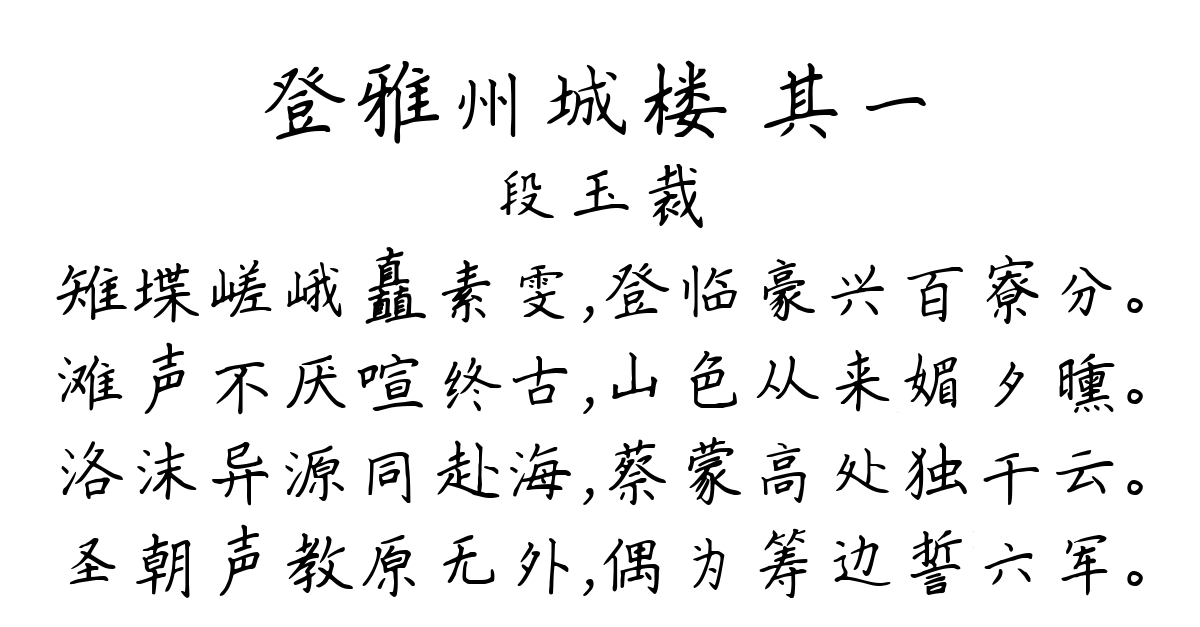 登雅州城楼 其一
段玉裁
雉堞嵯峨矗素雯,登临豪兴百寮分。
滩声不厌喧终古,山色从来媚夕曛。
洛沫异源同赴海,蔡蒙高处独干云。
圣朝声教原无外,偶为筹边誓六军。